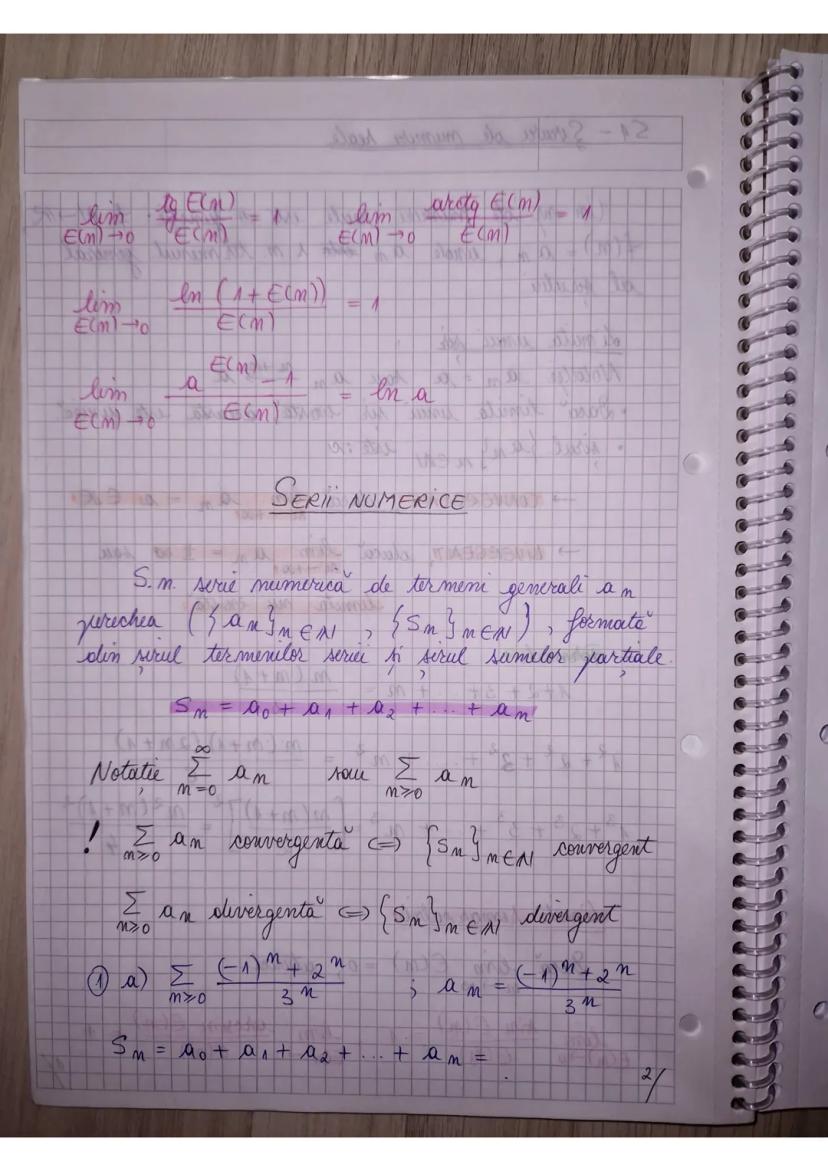 lim_{E(n)→0} tg E(n)/E(n) = 1    lim_{E(n)→0} arctg E(n)/E(n) = 1
lim_{E(n)→0} ln (1+E(n))/E(n) = 1
lim_{E(n)→0} (a^{E(n)} - 1)/E(n) = ln a
SERII NUMERICE
S.n. serie numerică de termeni generali a_n
perechea ({a_n}_{n∈N}, {S_n}_{n∈N}), formată
din șirul termenilor seriei și șirul sumelor parțiale.
S_n = a_0 + a_1 + a_2 + ... + a_n
Notație ∑_{n=0}^{∞} a_n    sau ∑_{n≥0} a_n
! ∑_{n≥0} a_n convergentă ⇔ {S_n}_{n∈N} convergent
∑_{n≥0} a_n divergentă ⇔ {S_n}_{n∈N} divergent
① a) ∑_{n≥0} ((-1)^n + 2^n)/3^n ; a_n = ((-1)^n + 2^n)/3^n
S_n = a_0 + a_1 + a_2 + ... + a_n =
2/